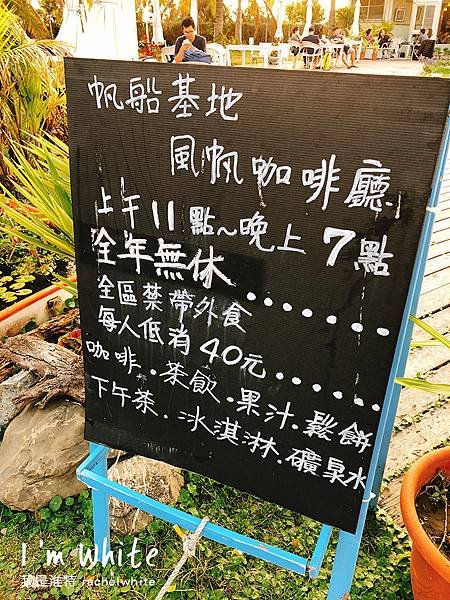 帆船基地
風帆咖啡廳
上午11點~晚上7點
全年無休.......
全區禁帶外食
每人低消40元......
咖啡.茶飲.果汁.鬆餅
下午茶.冰淇淋.礦泉水
I'm White
我是淮特 rachelwhite